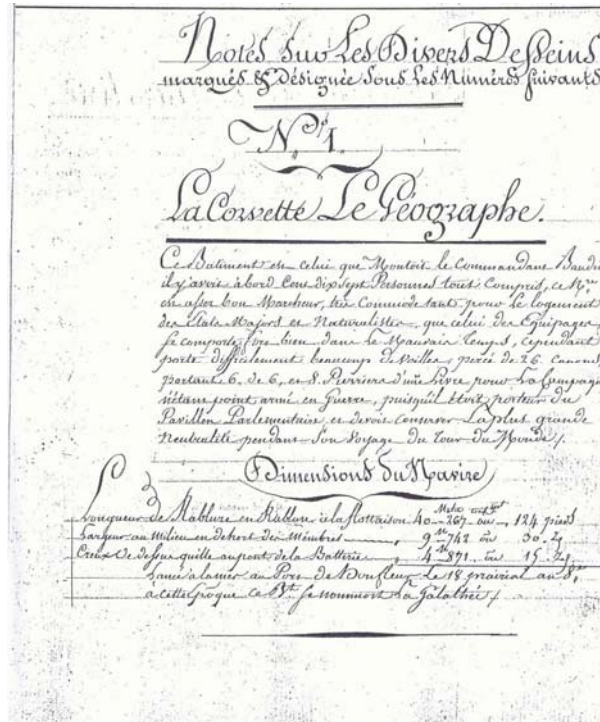 Notes Sur Les Divers Desseins
marqués & Désignée Sous Les Numéros suivants
N.° 1.
La Corvette Le Géographe.
Ce Batiment est celui que Montoit le Commandant Baudin
il y avoit à bord Cent dix sept Personnes tout Compris, ce N.re
est assez bon Marcheur, tres Commode tant pour le logement
des Etats Majors et Naturalistes, que celui des Equipages,
se comporte tres bien dans le Mauvais temps, cependant
porte difficilement beaucoup de Voilles, percé de 26 Canons,
portant 6. de 6, et 8. Pierriers d'une Livre pour La Campagne
n'étant point armé en Guerre, puisqu'il étoit porteur du
Pavillon Parlementaire, et devoit conserver La plus grande
neutralité pendant Son Voyage du Tour du Monde /.
Dimensions du Navire
Longueur de Rablure en Rablure à la flottaison 40 - 267 ou , 124 pieds
Largeur au Milieu en dehors des Membres , 9 - 742 ou 30.
Creux de dessus quille au pont de la Batterie , 4 - 871 ou 15.
Lancé à la mer au Port de Honfleur Le 18 prairial an 8.
a cette époque ce B.t se nommoit La Galathée /.